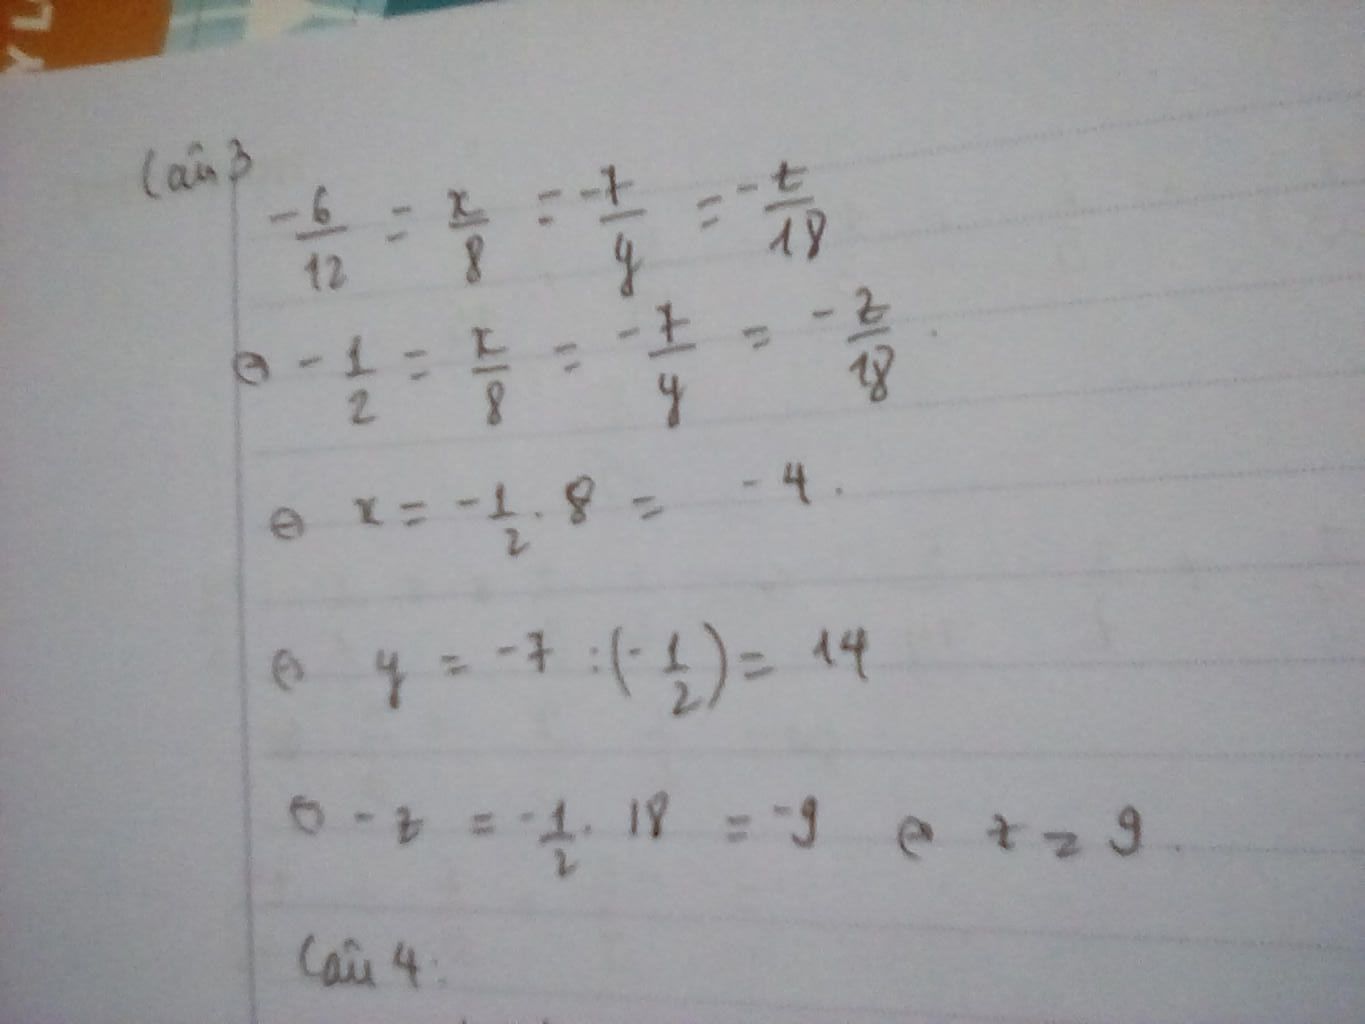 YL
Câu 3
-6/12 = x/8 = -7/y = -z/18
⇔ -1/2 = x/8 = -7/y = -z/18.
⇔ x = -1/2 . 8 = -4.
⇔ y = -7 : (-1/2) = 14
⇔ -z = -1/2 . 18 = -9 ⇔ z = 9.
Câu 4: